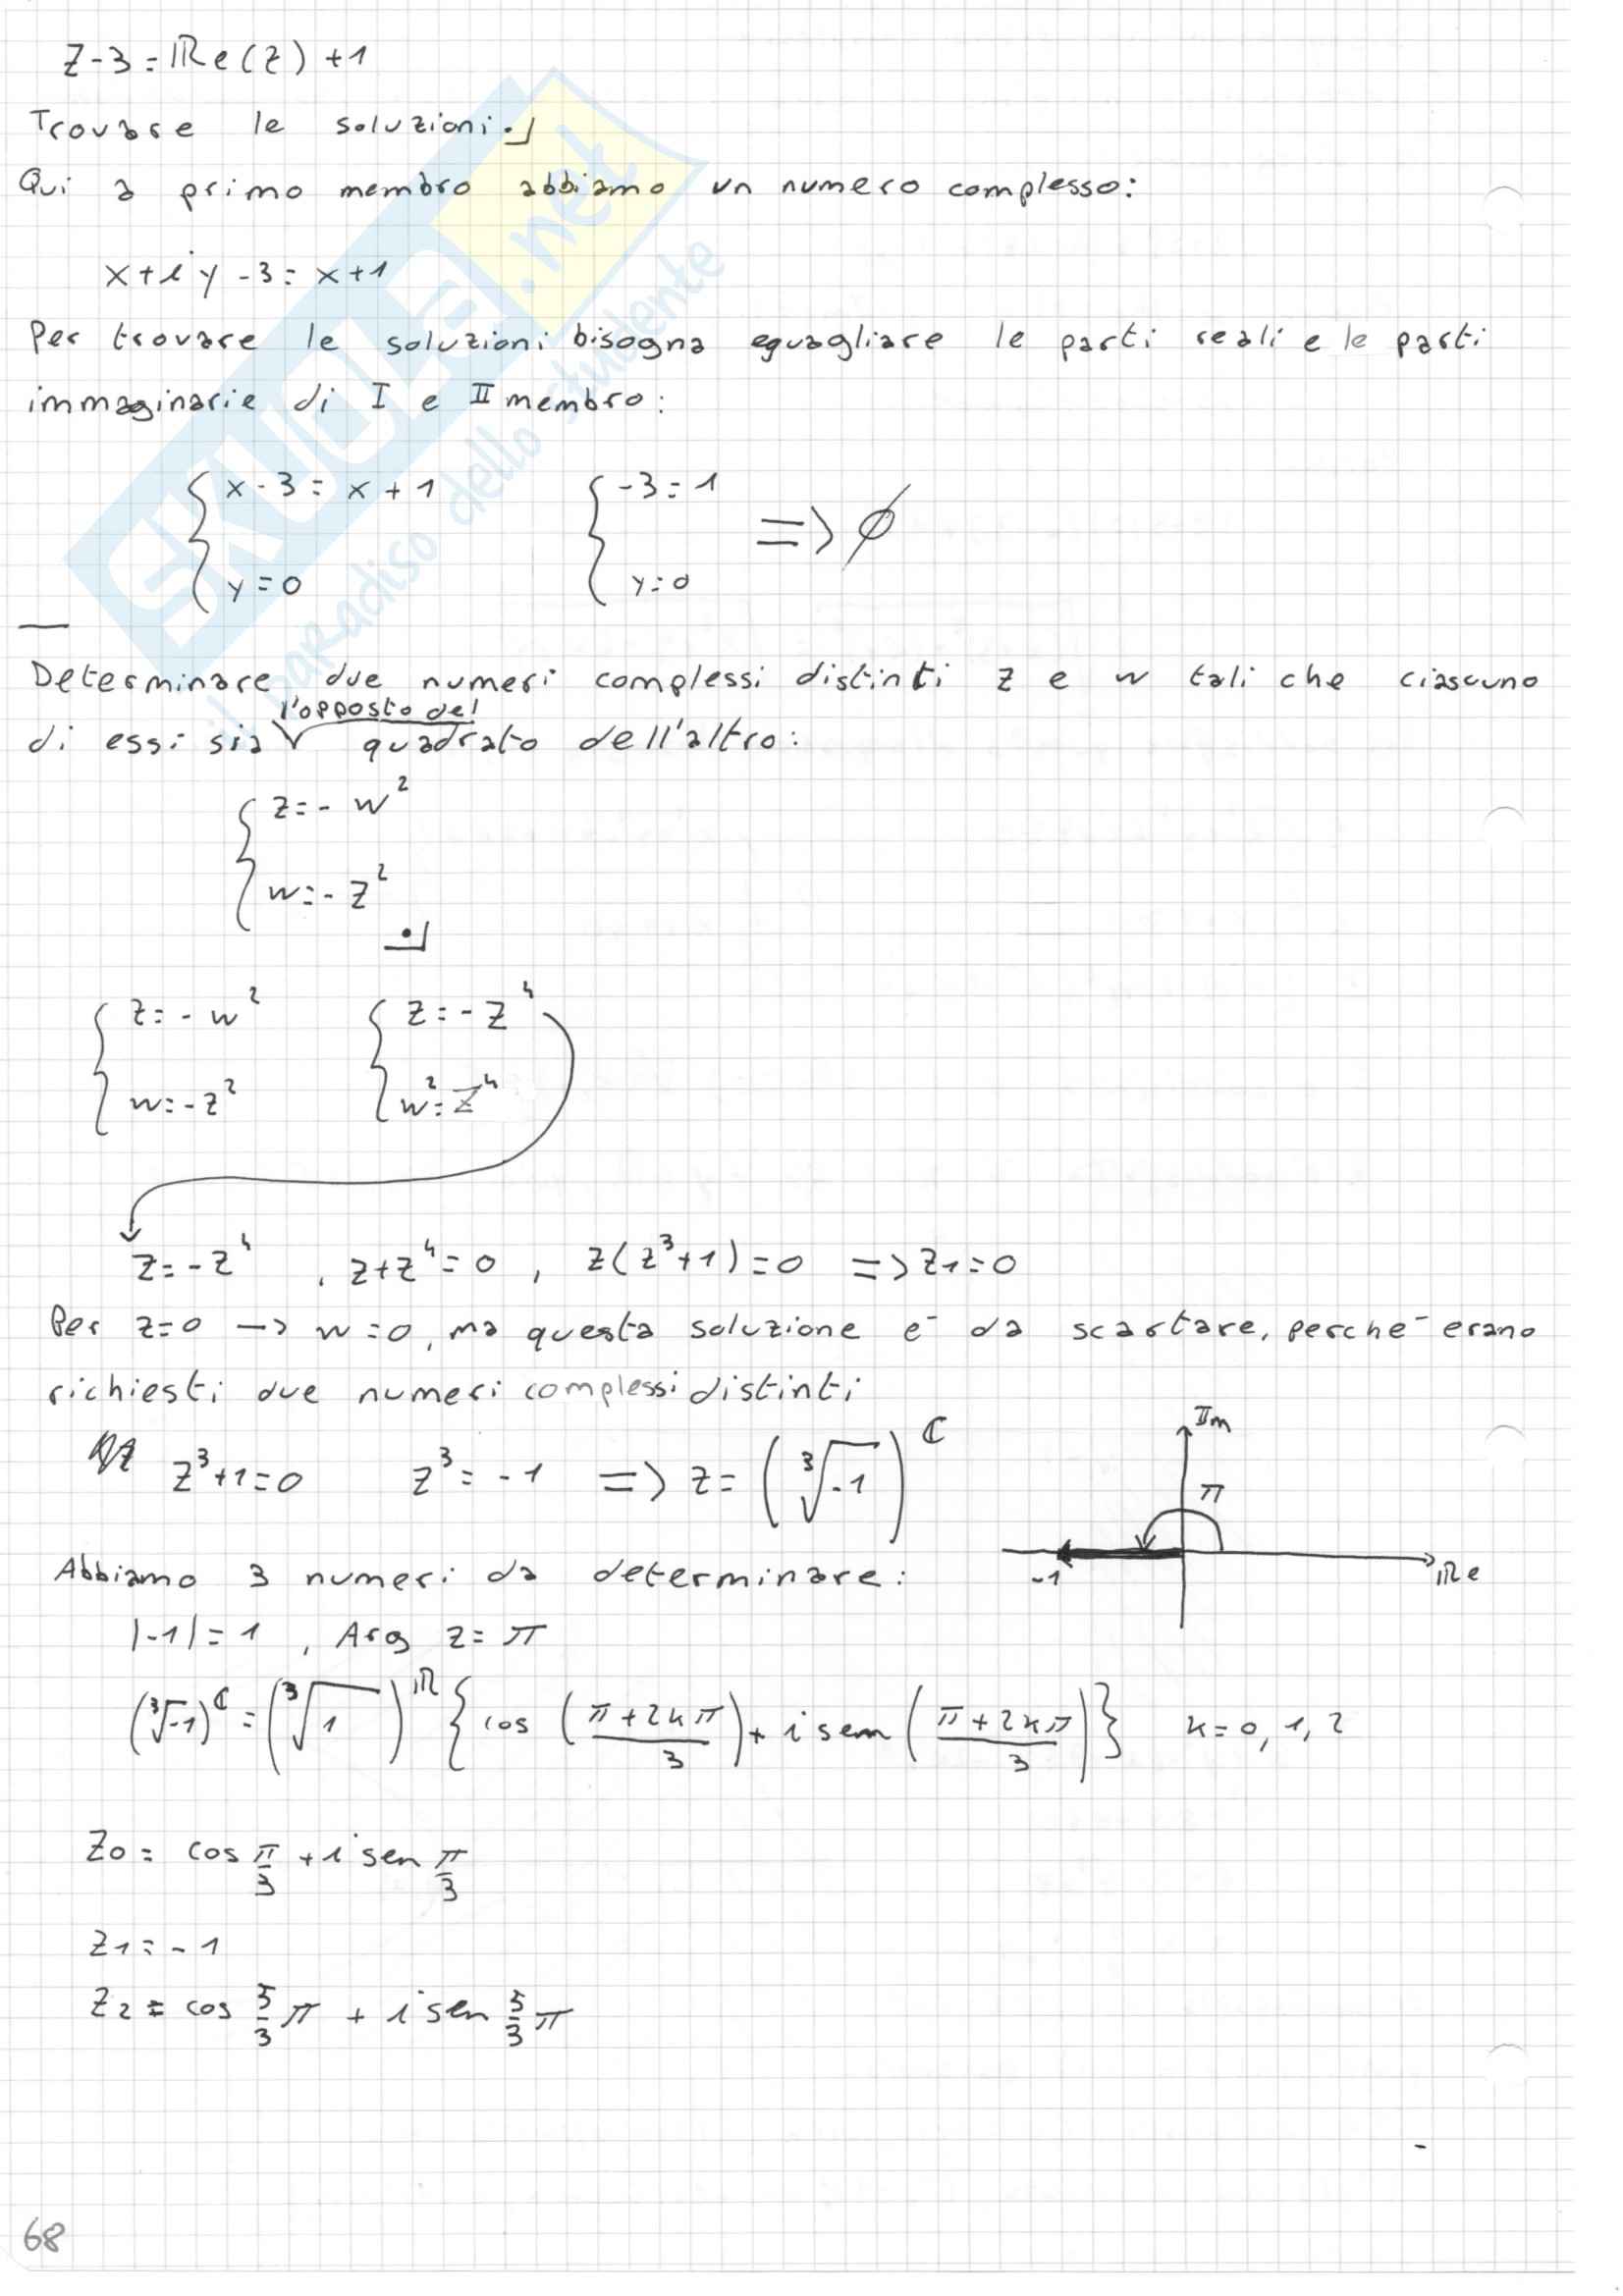 z-3=ℝe(z)+1
Trovare le soluzioni.
Qui a primo membro abbiamo un numero complesso:
x+iy-3=x+1
Per trovare le soluzioni bisogna eguagliare le parti reali e le parti
immaginarie di I e II membro:
{ x-3=x+1 { -3=1 => ∅
{ y=0 { y=0
Determinare due numeri complessi distinti z e w tali che ciascuno
l'opposto del
di essi sia quadrato dell'altro:
{ z=-w²
{ w=-z²
{ z=-w² { z=-z⁴
{ w=-z² { w²=z⁴
z=-z⁴, z+z⁴=0, z(z³+1)=0 => z₁=0
Per z=0 -> w=0, ma questa soluzione è da scartare, perchè erano
richiesti due numeri complessi distinti
z³+1=0 z³=-1 => z=(∛-1)^ℂ
Abbiamo 3 numeri da determinare:
|-1|=1, Arg z=π
(∛-1)^ℂ=(∛1)^ℝ {cos((π+2kπ)/3)+i sem((π+2kπ)/3)} k=0,1,2
z₀=cos π/3 +i sen π/3
z₁=-1
z₂=cos 5/3 π + i sen 5/3 π
IIm
π
-1
ℝe
68
SKUOLA.net
il paradiso dello studente